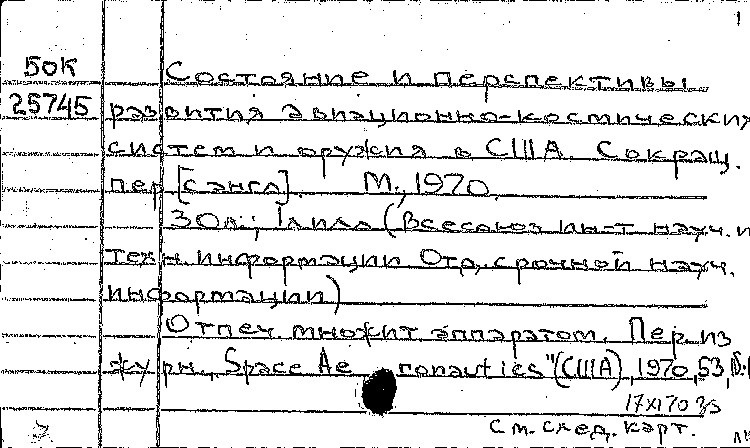 1
50К Состояние и перспективы
25745 развития авиационно-космических
систем и оружия в США. Сокращ.
пер. [с англ]. М., 1970.
30л.; 1л илл (Всесоюз ин-т науч. и
техн. информации Отд. срочной науч.
информации)
Отпеч. множит. аппаратом. Пер. из
журн. „Space Aeronautics" (США), 1970, 53,
17х170
См. след. карт.